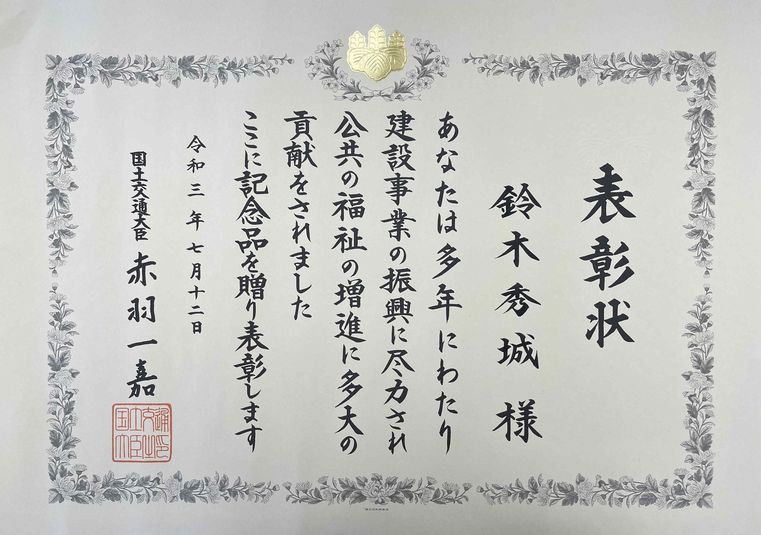 表彰状
鈴木秀城様
あなたは多年にわたり
建設事業の振興に尽力され
公共の福祉の増進に多大の
貢献をされました
ここに記念品を贈り表彰します
令和三年七月十二日
国土交通大臣 赤羽一嘉